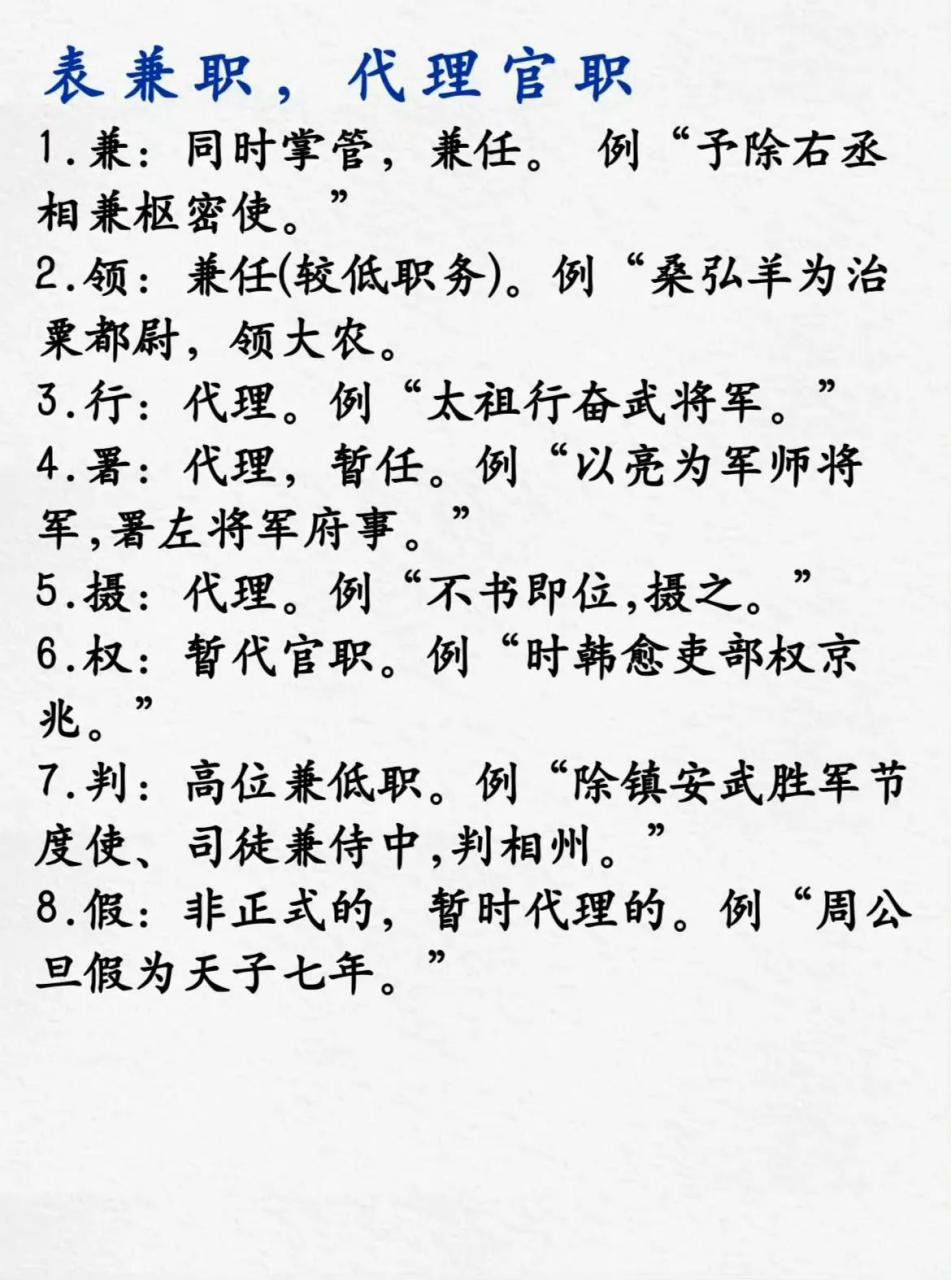 表兼职，代理官职
1.兼：同时掌管，兼任。 例“予除右丞
相兼枢密使。”
2.领：兼任(较低职务)。例“桑弘羊为治
粟都尉，领大农。
3.行：代理。例“太祖行奋武将军。”
4.署：代理，暂任。例“以亮为军师将
军,署左将军府事。”
5.摄：代理。例“不书即位,摄之。”
6.权：暂代官职。例“时韩愈吏部权京
兆。”
7.判：高位兼低职。例“除镇安武胜军节
度使、司徒兼侍中,判相州。”
8.假：非正式的，暂时代理的。例“周公
旦假为天子七年。”